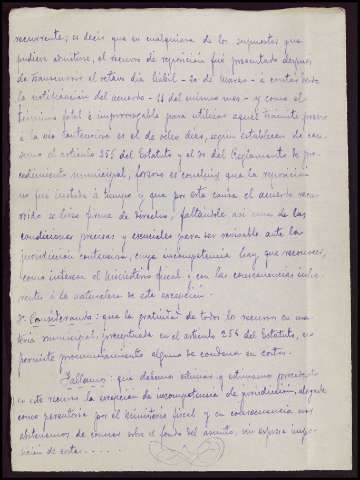 recurrente; es decir que en cualquiera de los supuestos que
pudiera admitirse, el recurso de reposición fué presentado después
de transcurrir el octavo día hábil - 20 de Marzo - á contar desde
la notificación del acuerdo - 11 del mismo mes - y como el
término fatal é improrrogable para utilizar aquel trámite previo
á la vía contenciosa es el de ocho días, según establecen de con-
suno el artículo 255 del Estatuto y el 30 del Reglamento de pro-
cedimiento municipal, forzoso es concluir que la reposición
no fué instada á tiempo y que por esta causa el acuerdo recu-
rrido se hizo firme de derecho, faltándole así una de las
condiciones precisas y esenciales para ser revisable ante la
jurisdicción contenciosa, cuya incompetencia hay que reconocer,
como interesa el Ministerio fiscal, con las consecuencias inhe-
rentes á la naturaleza de esta excepción.
Considerando: que la gratuidad de todos los recursos en ma-
teria municipal, preceptuada en el artículo 256 del Estatuto, no
permite pronunciamiento alguno de condena en costas.
Fallamos: que debemos estimar y estimamos procedente
en este recurso la excepción de incompetencia de jurisdicción, alegada
como perentoria por el Ministerio fiscal y en consecuencia nos
abstenemos de conocer sobre el fondo del asunto, sin expresa impo-
sición de costas.....